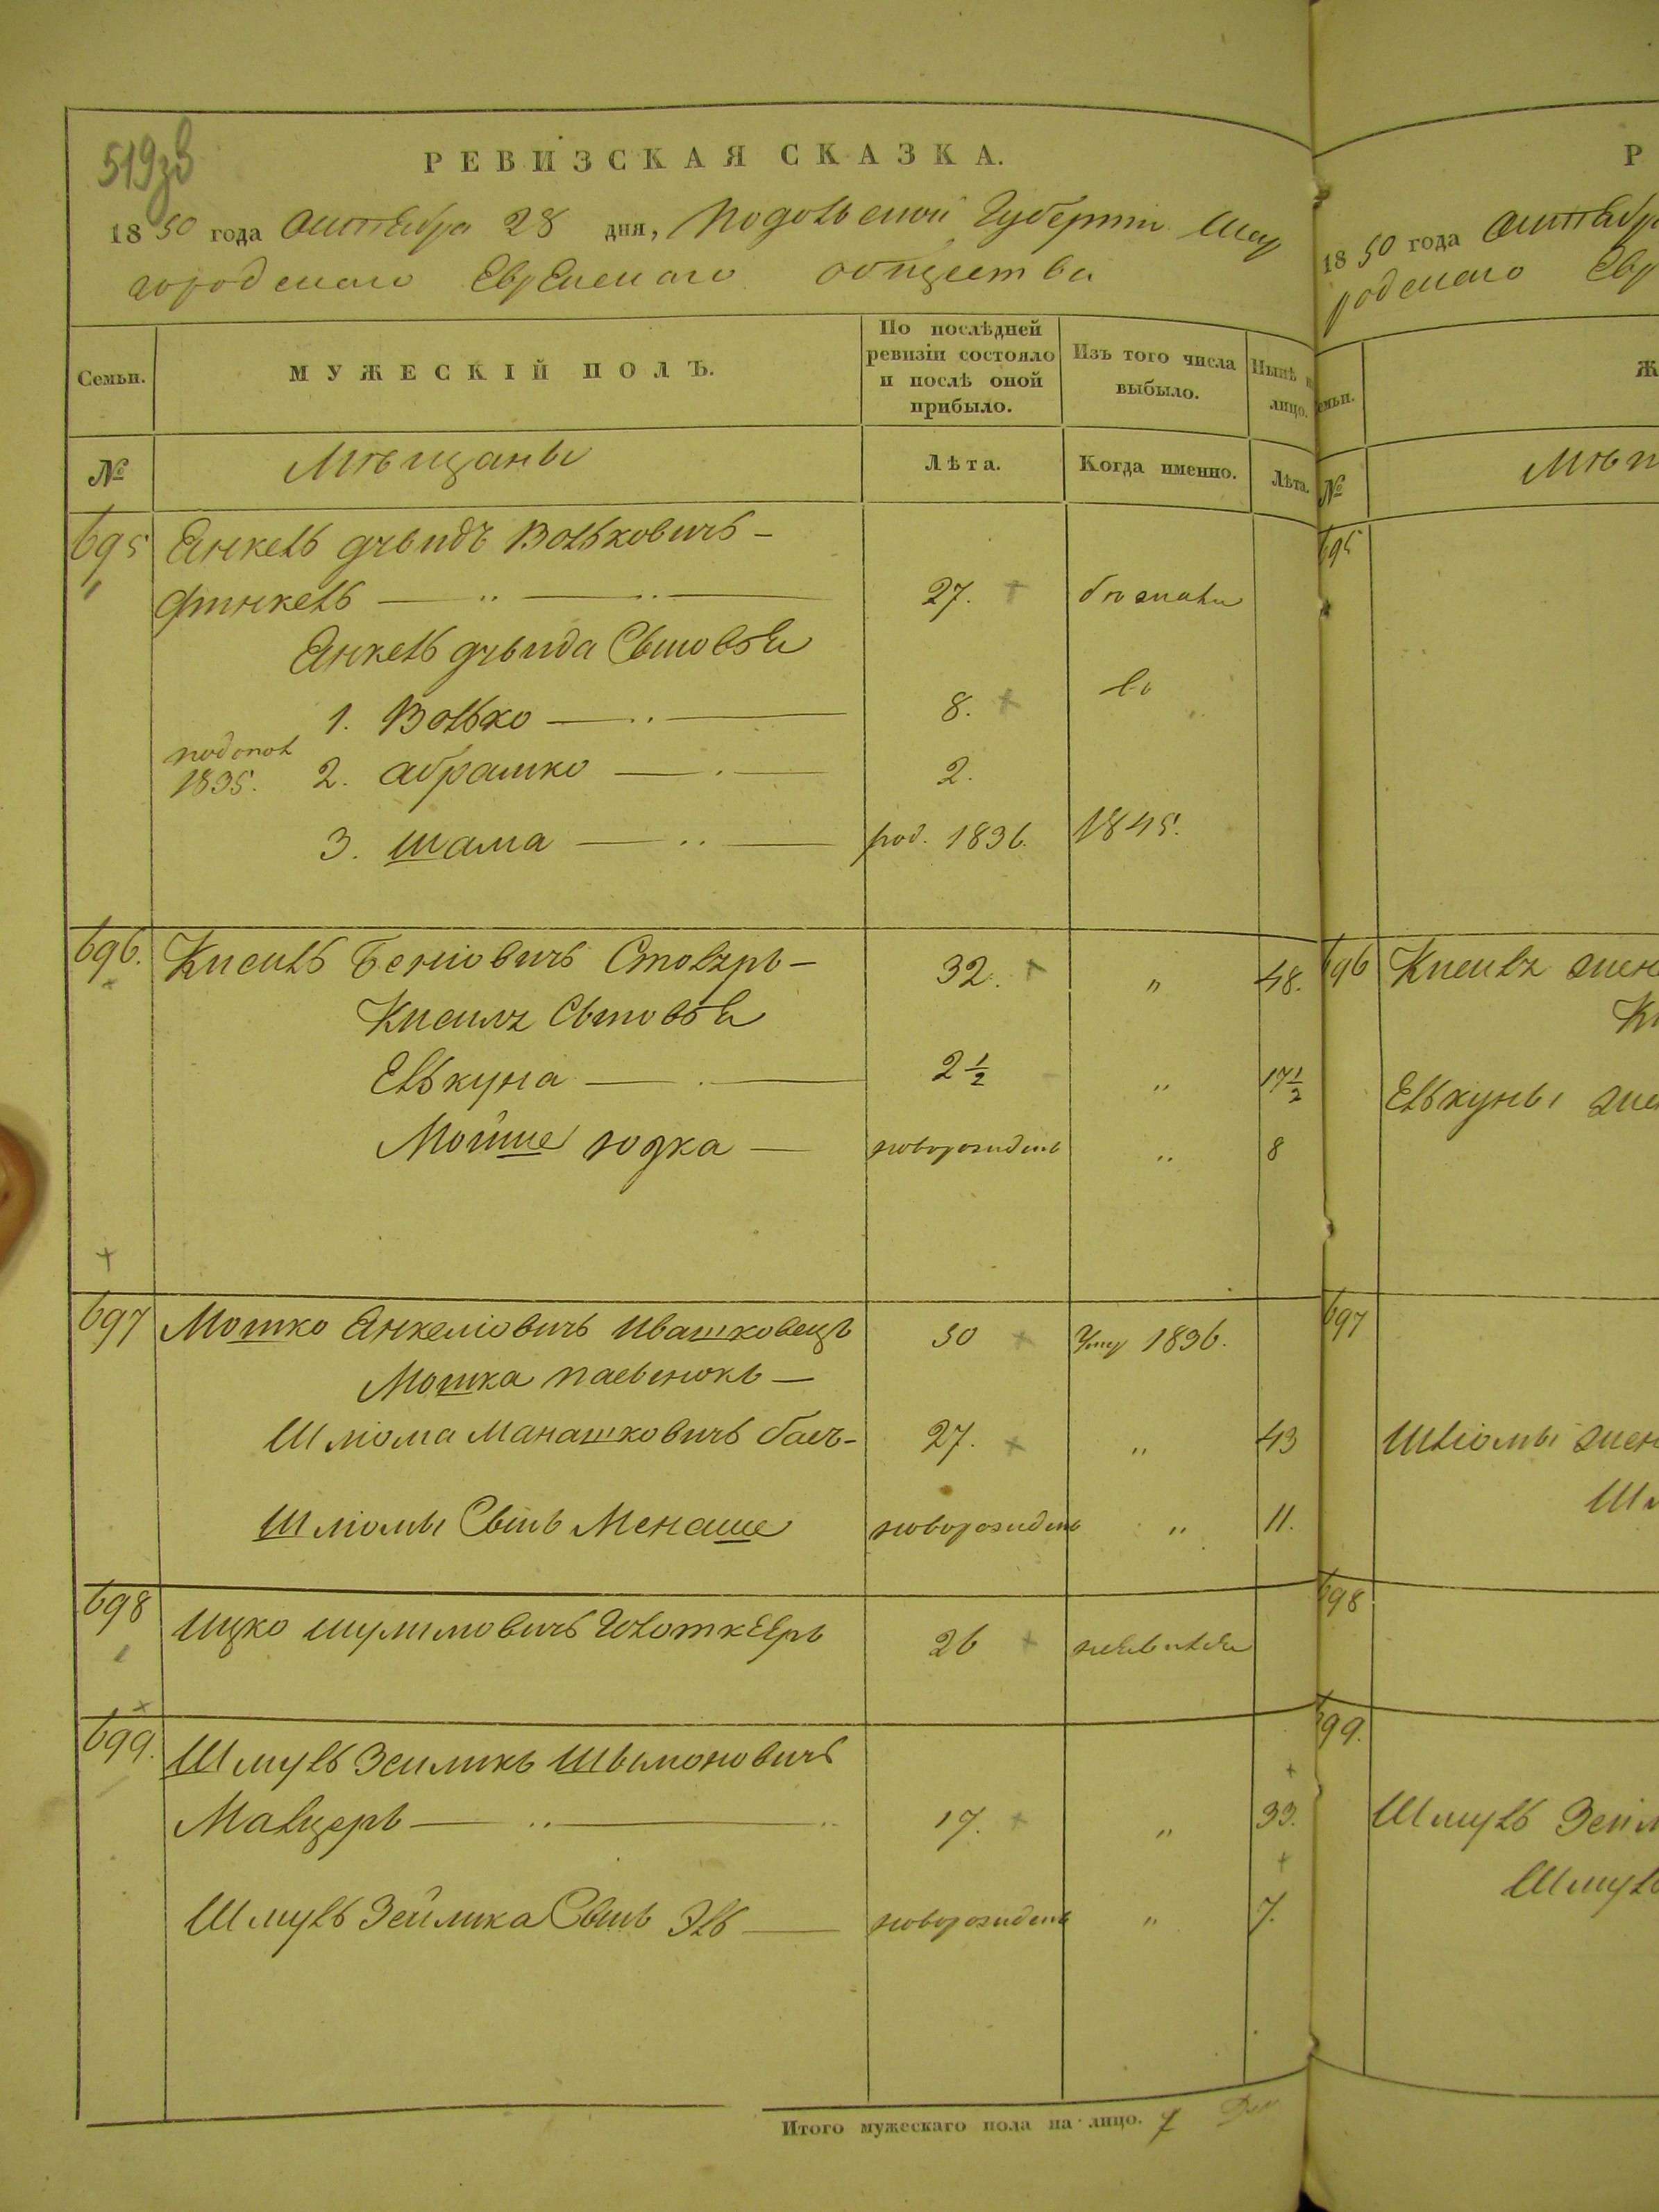 519зв
РЕВИЗСКАЯ СКАЗКА.
1850 года октября 28 дня, Подольской Губерніи Шар
городскаго Еврейскаго общества
Семьи.
МУЖЕСКІЙ ПОЛЪ.
По послѣдней ревизіи состояло и послѣ оной прибыло.
Изъ того числа выбыло.
Нынѣ н лицо.
№
Мѣщаны
Лѣта.
Когда именно.
Лѣта.
695 Янкель Волькович -
Финкель 27.
Янкель Сыновья
1. Волько 8.
1835. 2. Абрамко 2.
3. Шама род. 1836. 1845.
696. Кисиль Беніовичъ Столяръ - 32. " 48.
Кисиля Сыновья
Елькуна 2 1/2 " 17 1/2
Мойше юдка - новорожденъ " 8
697 Мошко Янкеліовичъ Ивашковецъ 50 Уму 1836.
Мошка -
Шліома Манашковичъ 27. " 43
Шліомы Сынъ Менаше новорожденъ " 11.
698 Ицко Шулимовичъ 26
699. Шмуль Зейликъ Шлiомовичъ
Мальцеръ 17. " 33.
Шмуль Зейлика Сынъ Эль новорожденъ " 7.
Итого мужескаго пола на лицо. 7
Р
1850 года октября
родскаго Евр
емьи.
Ж
№
695
696 Кисиля жен
Елькуны жен
697
Шліомы жен
698
699.
Шмуль Зейл
Шмуль